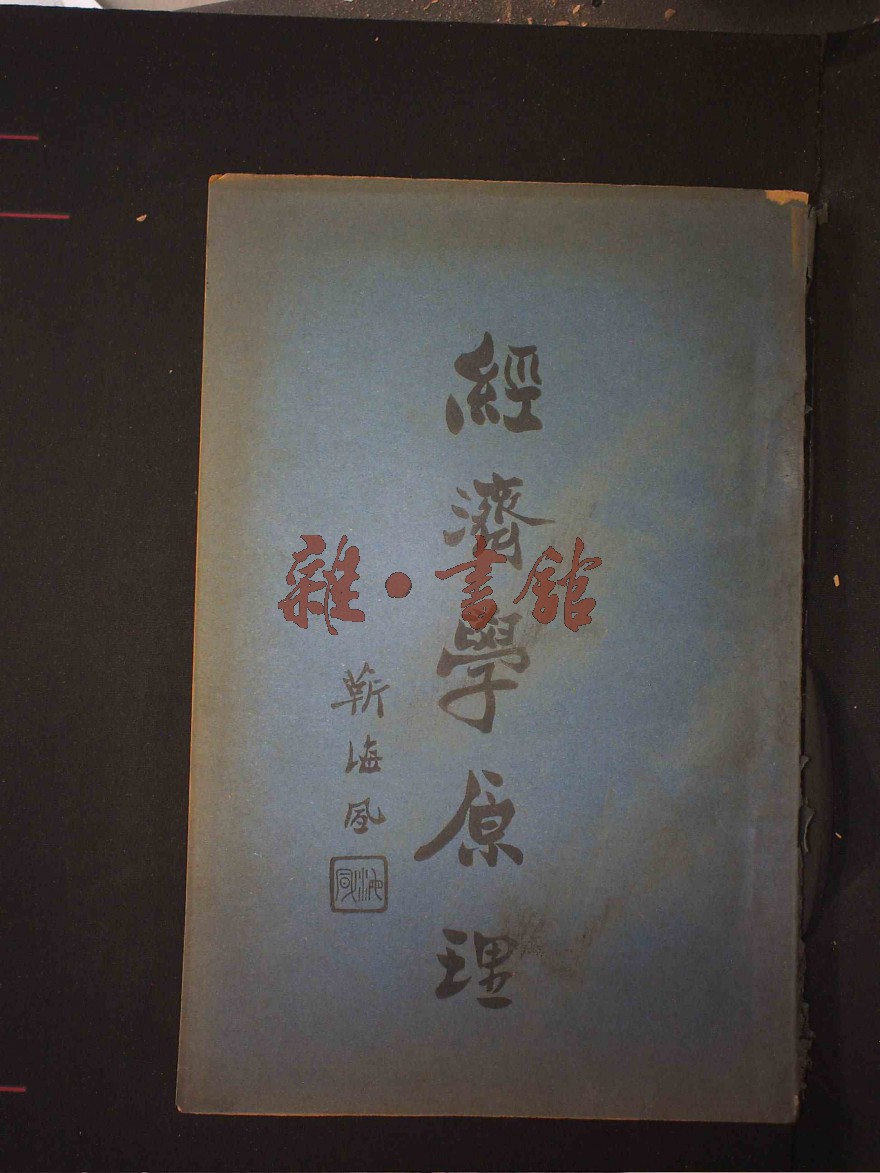 經濟學原理
靳海風
雜·書館